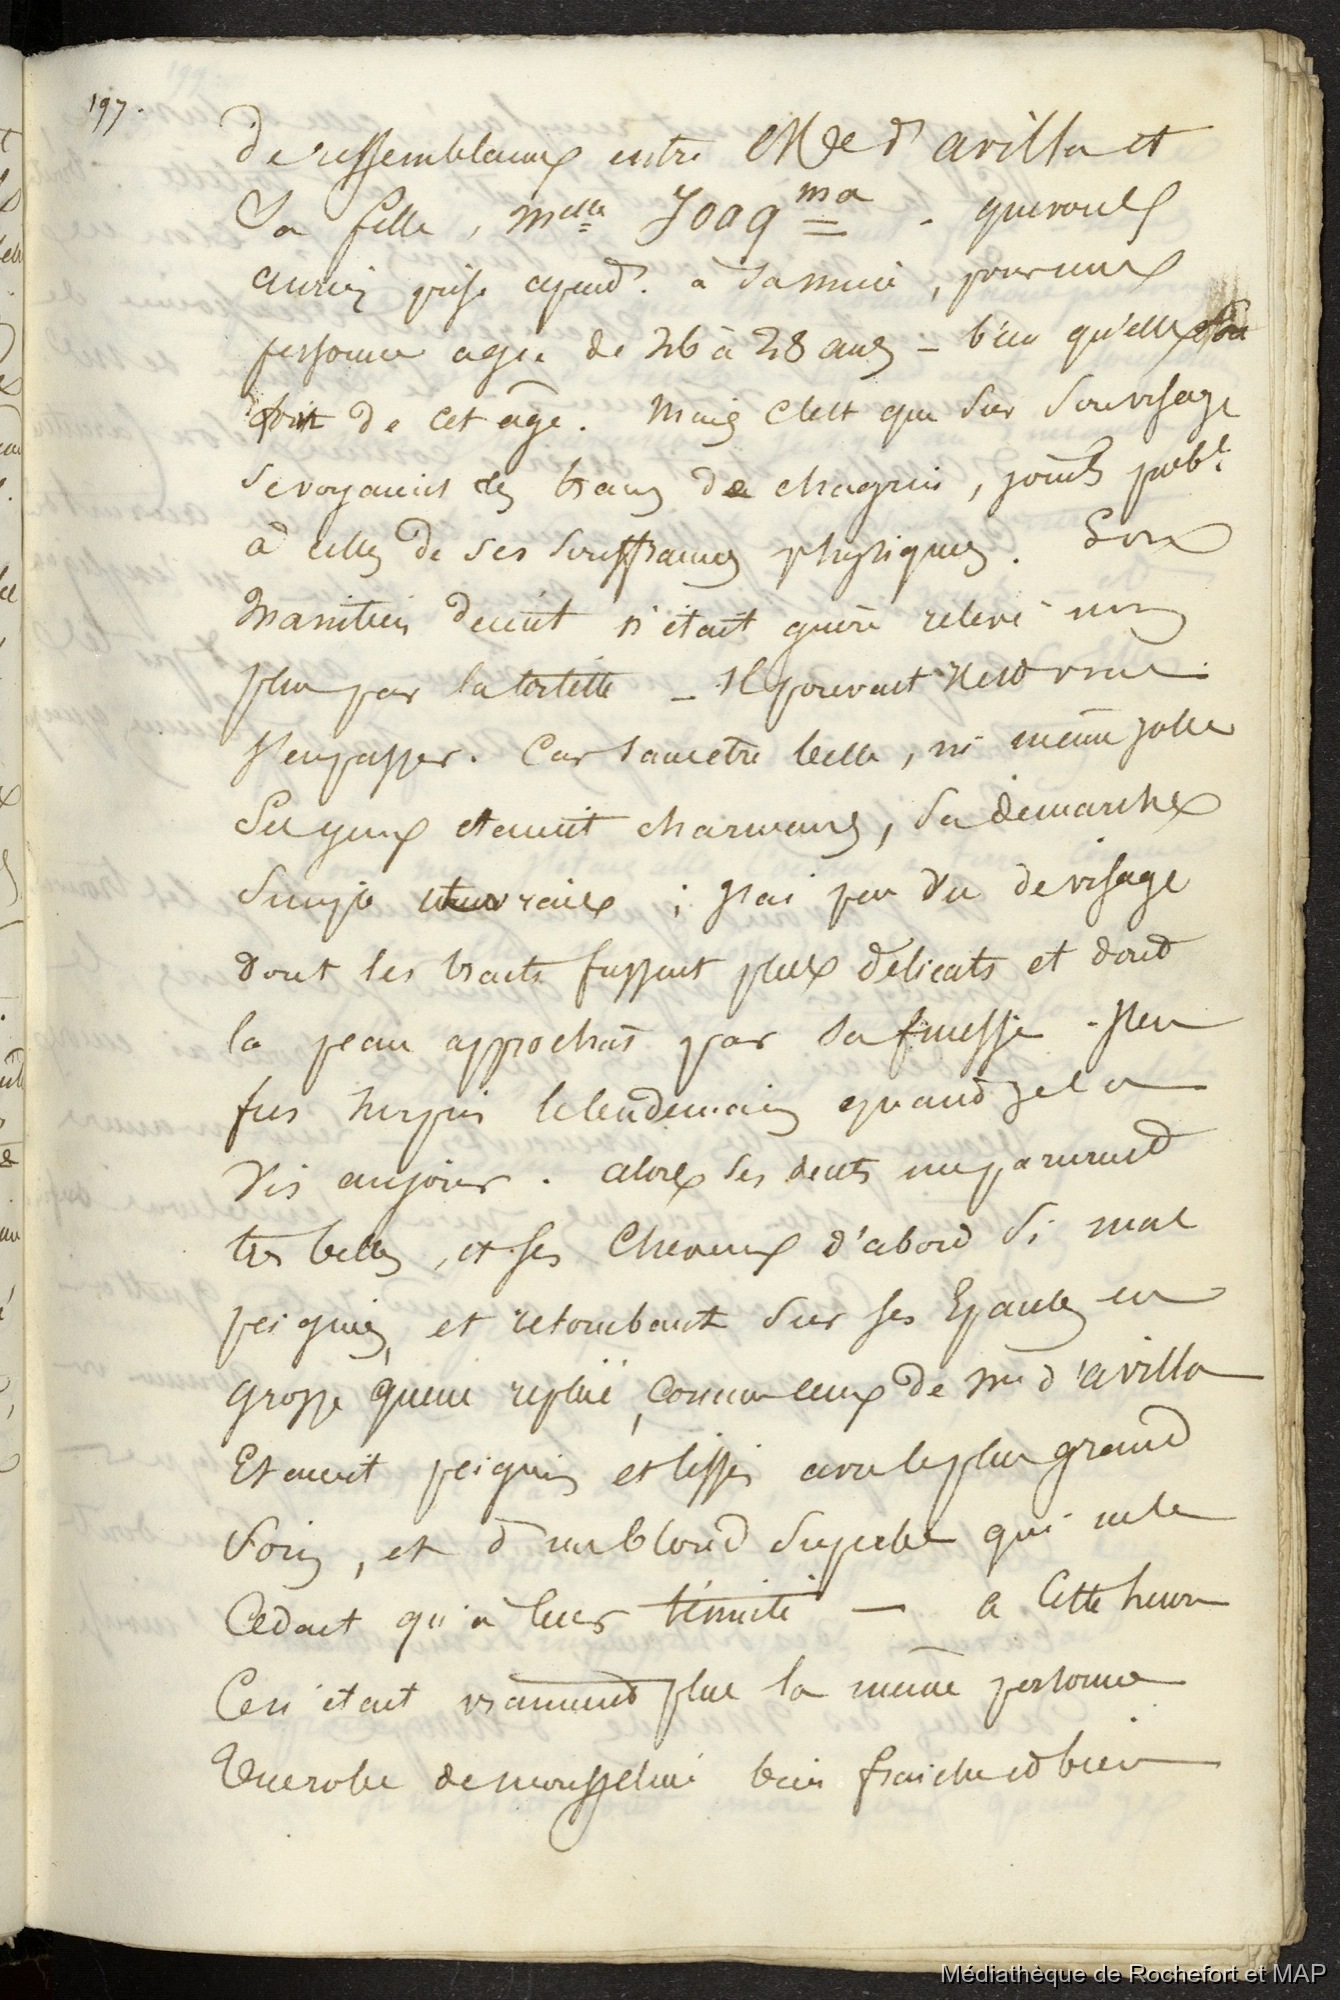 197.
de ressemblance entre Mde d'avilla et
Sa fille, Melle Joaqma - que vous
auriez prise apend. à Sa mine, pour une
personne agée de 26 à 28 ans - bien qu'elle
de cet âge. Mais C'est que Sur Son visage
Se voyaient les traces de chagrin, joints prob.t
à celles de ses Souffrances physiques. Son
maintien decent n'était guère relevé non
plus par Sa toilette - Il pouvait il est vrai
S'en passer. Car Sans être belle, ni même jolie
Ses yeux etaient charmans, Sa démarche
Simple ; J'ai peu Vu de visage
dont les traits fussent plus délicats et dont
la peau approchat par Sa finesse - J'en
fus Surpris le lendemain quand je la
Vis au jour. alors Ses dents me parurent
très belles, et Ses Cheveux d'abord Si mal
peignés, et retombant Sur Ses Epaules en
grosse queue repliée, Comme ceux de Me d'avilla
Etaient peignés et lissés avec le plus grand
Soin, et d'un blond Superbe qui ne le
Cédait qu'à leur ténuité — a Cette heure
Ce n'était vraiment plus la même personne
Une robe de mousseline bien fraiche et bien
Médiathèque de Rochefort et MAP